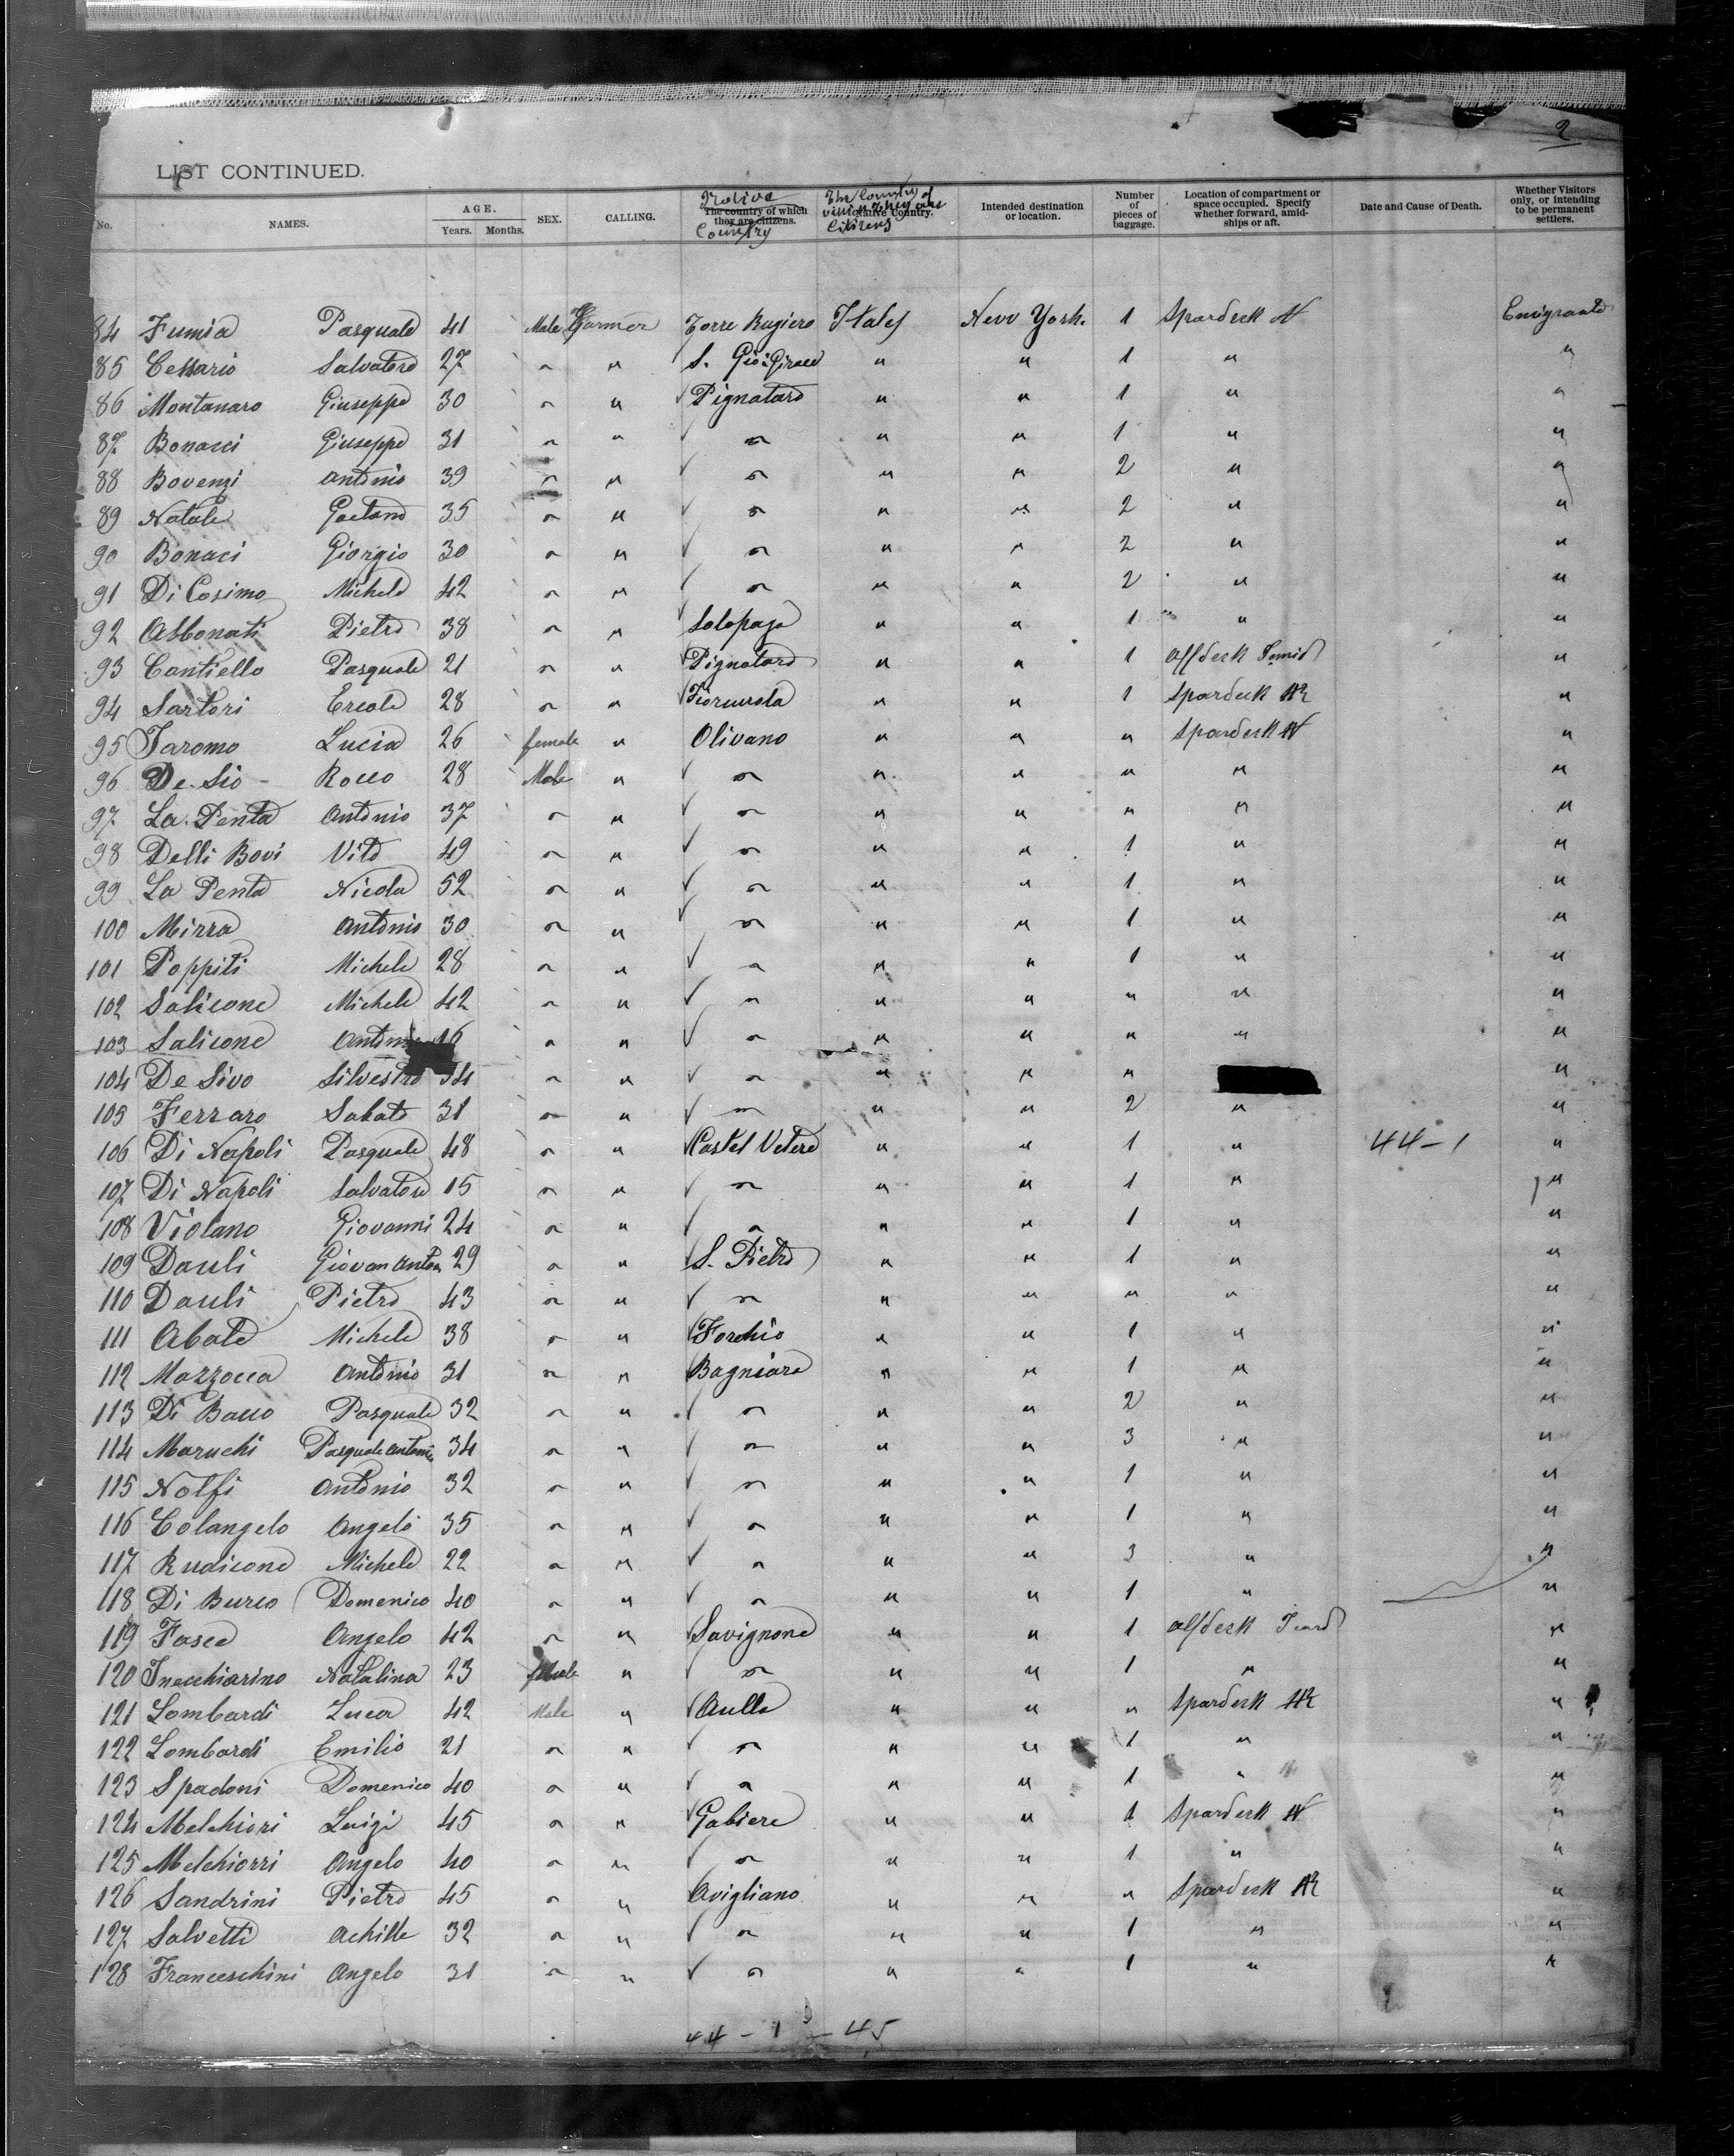 2
LIST CONTINUED.
No. NAMES. AGE. Years. Months. SEX. CALLING. The country of which they are citizens. Native Country. Intended destination or location. Number of pieces of baggage. Location of compartment or space occupied. Specify whether forward, amidships or aft. Date and Cause of Death. Whether Visitors only, or intending to be permanent settlers.
Native Country The Country of which they are Citizens
84 Fumia Pasquale 41 Male Farmer Torre Rugiero Italy New York. 1 Spardeck Emigrants
85 Cessario Salvatore 27 " " S. " " 1 " "
86 Montanaro Giuseppe 30 " " Pignataro " " 1 " "
87 Bonacci Giuseppe 31 " " " " " 1 " "
88 Bovenzi Antonio 39 " " " " " 2 " "
89 Natale Gaetano 35 " " " " " 2 " "
90 Bonaci Giorgio 30 " " " " " 2 " "
91 Di Cosimo Michele 42 " " " " " 2 " "
92 Abbonati Pietro 38 " " Solopaga " " 1 " "
93 Cantiello Pasquale 21 " " Pignataro " " 1 "
94 Sartori Ercole 28 " " " " 1 Spardeck "
95 Jaromo Lucia 26 female " Olivano " " " Spardeck "
96 De Sio Rocco 28 Male " " " " " " "
97 La Penta Antonio 37 " " " " " " " "
98 Delli Bovi Vito 49 " " " " " 1 " "
99 La Penta Nicola 52 " " " " " 1 " "
100 Mirra Antonio 30 " " " " " 1 " "
101 Poppiti Michele 28 " " " " " 1 " "
102 Salicone Michele 42 " " " " " " " "
103 Salicone 16 " " " " " " " "
104 De Sivo Silvestro 34 " " " " " " "
105 Ferraro Sabato 31 " " " " " 2 " "
106 Di Napoli Pasquale 48 " " Castel Vetere " " 1 " 44-1 "
107 Di Napoli Salvatore 15 " " " " " 1 " "
108 Violano Giovanni 24 " " " " " 1 " "
109 Dauli Giovan Anton 29 " " S. Pietro " " 1 " "
110 Dauli Pietro 43 " " " " " " " "
111 Abate Michele 38 " " Forchio " " 1 " "
112 Mazzocca Antonio 31 " " Bagniara " " 1 " "
113 Di Bacco Pasquale 32 " " " " " 2 " "
114 Maruchi Pasquale Antonio 34 " " " " " 3 " "
115 Nolfi Antonio 32 " " " " " 1 " "
116 Colangelo Angelo 35 " " " " " 1 " "
117 Rudicone Michele 22 " " " " " 3 " "
118 Di Burco Domenico 40 " " " " " 1 " "
119 Fasce Angelo 42 " " Savignone " " 1 "
120 Natalina 23 " " " " 1 " "
121 Lombardi Luca 42 Male " Aulla " " " Spardeck "
122 Lombardi Emilio 21 " " " " " 1 " "
123 Spadoni Domenico 40 " " " " " 1 " "
124 Melchiori Luigi 45 " " Gabiere " " 1 Spardeck "
125 Melchiorri Angelo 40 " " " " " 1 " "
126 Sandrini Pietro 45 " " Avigliano " " " Spardeck "
127 Salvetti Achille 32 " " " " " 1 " "
128 Franceschini Angelo 31 " " " " " 1 " "
44 - 1 - 45